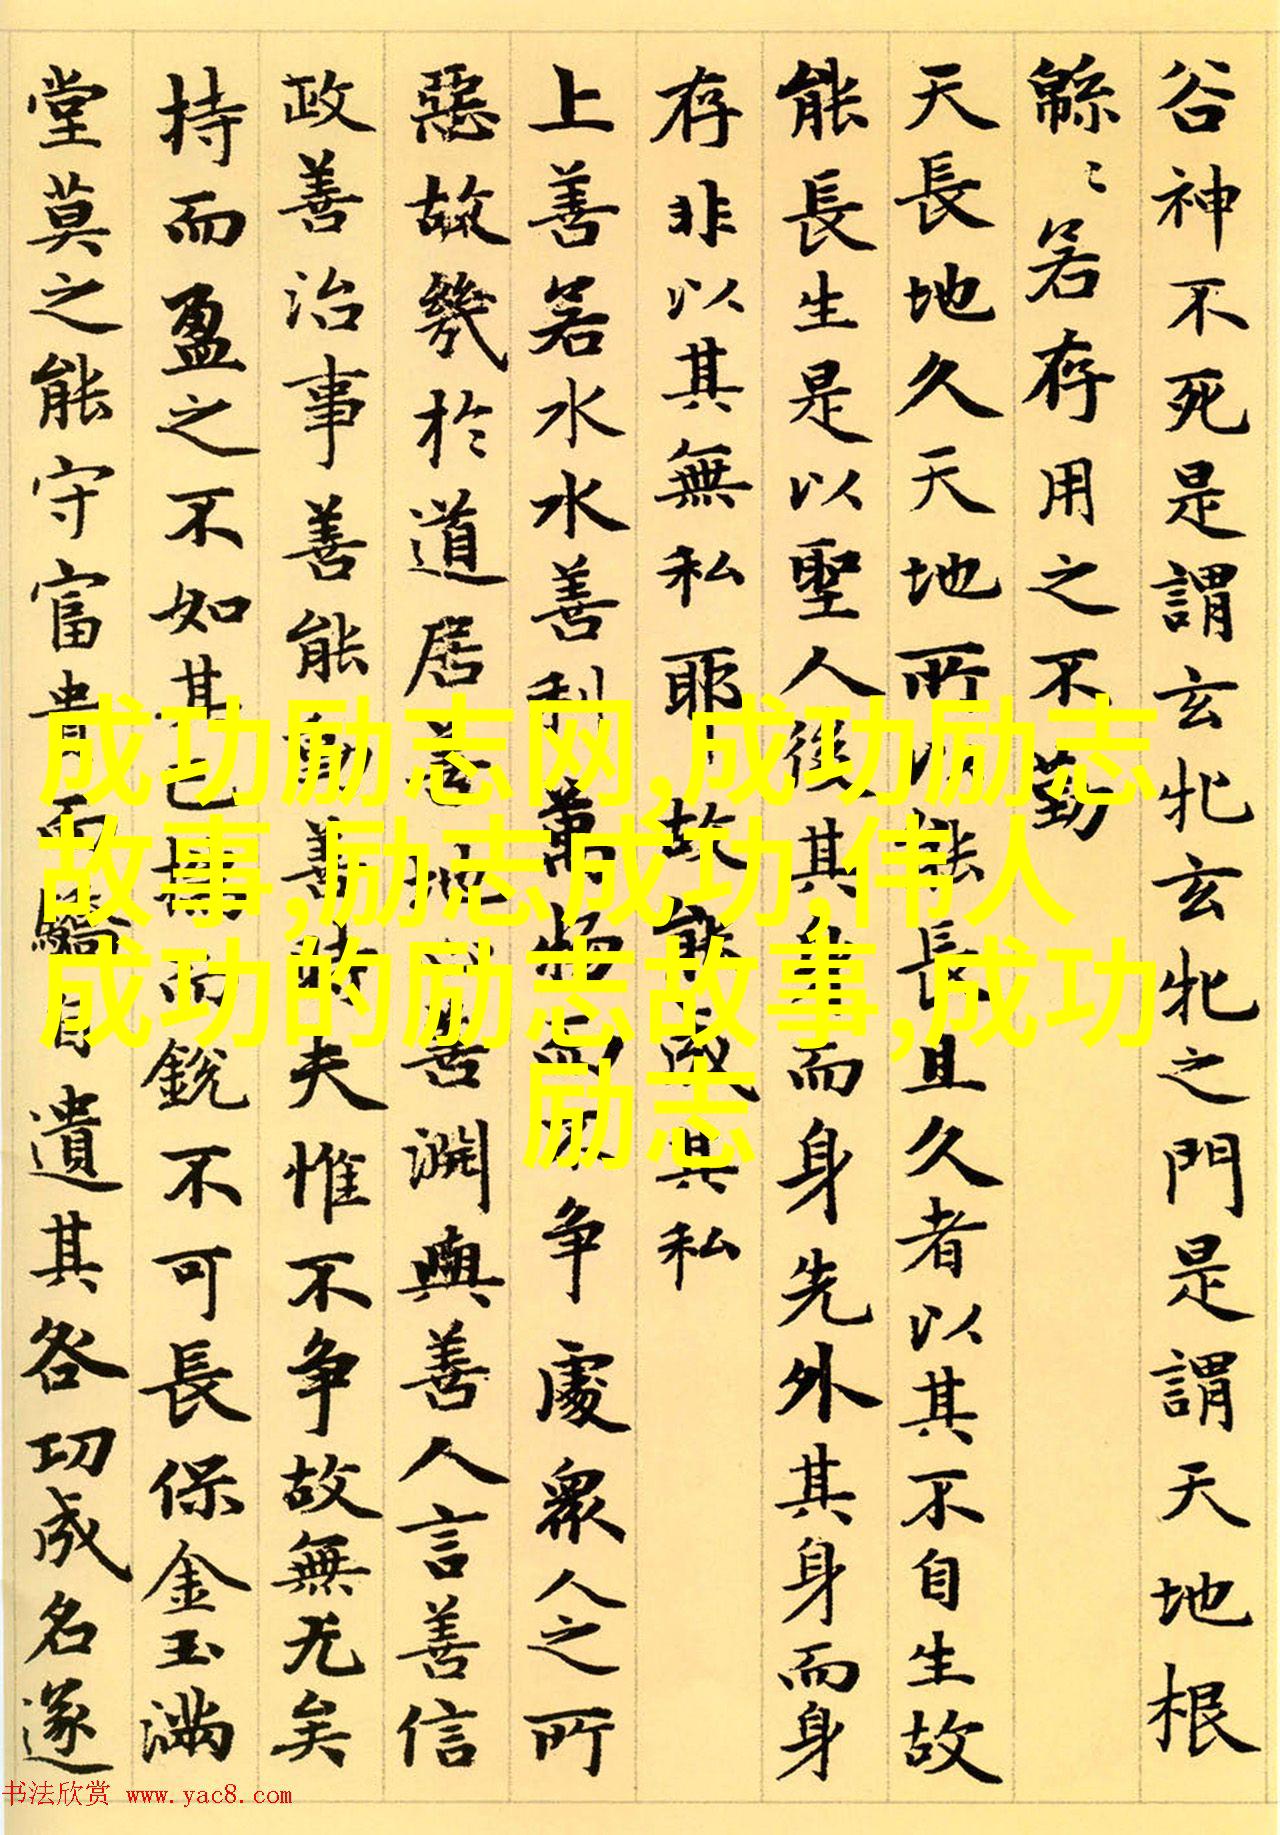 谷神不死是謂玄牝玄牝之門是謂天地根
緜〻若存用之不勤
天長地久天地所以能長且久者以其不自生故
能長生是以聖人後其身而身先外其身而身
存非以其無私耶故能成其私
上善若水水善利萬物而不争處衆人之所
惡故幾於道居善地心善淵與善人言善信
政善治事善能動善時夫惟不争故無尤矣
持而盈之不如其已揣而銳不可長保金玉滿
堂莫之能守富貴而驕自遺其咎功成名遂
成功励志网,成功励志
故事,励志成功,伟人
成功的励志故事,成功
励志
书法欣赏 www.yac8.com